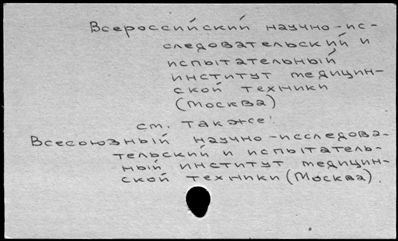 Всероссийский научно-ис-
следовательский и
испытательный
институт медицин-
ской техники
(Москва)
см. также:
Всесоюзный научно-исследова-
тельский и испытатель-
ный институт медицин-
ской техники (Москва).